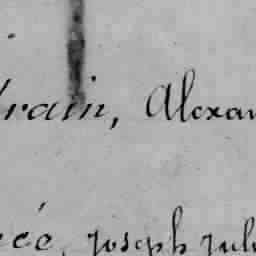 rain, Alexan
cé, joseph jul